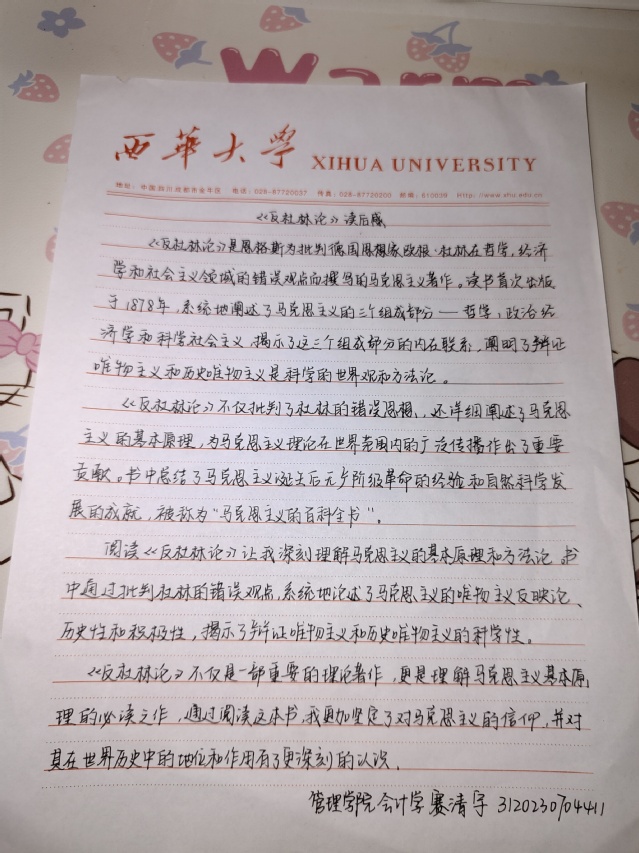 Warm
西華大學 XIHUA UNIVERSITY
地址：中国四川成都市金牛区 电话：028-87720037 传真：028-87720200 邮编：610039 Http://www.xhu.edu.cn
《反杜林论》读后感
《反杜林论》是恩格斯为批判德国思想家欧根·杜林在哲学，经济
学和社会主义领域的错误观点而撰写的马克思主义著作。该书首次出版
于1878年，系统地阐述了马克思主义的三个组成部分——哲学，政治经
济学和科学社会主义，揭示了这三个组成部分的内在联系，阐明了辩证
唯物主义和历史唯物主义是科学的世界观和方法论。
《反杜林论》不仅批判了杜林的错误思想，还详细阐述了马克思
主义的基本原理，为马克思主义理论在世界范围内的广泛传播作出了重要
贡献。书中总结了马克思主义诞生后无产阶级革命的经验和自然科学发
展的成就，被称为“马克思主义的百科全书”。
阅读《反杜林论》让我深刻理解马克思主义的基本原理和方法论。书
中通过批判杜林的错误观点，系统地论述了马克思主义的唯物主义反映论、
历史性和积极性，揭示了辩证唯物主义和历史唯物主义的科学性。
《反杜林论》不仅是一部重要的理论著作，更是理解马克思主义基本原
理的必读之作，通过阅读这本书，我更加坚定了对马克思主义的信仰，并对
其在世界历史中的地位和作用有了更深刻的认识。
管理学院会计学 赛清宇 3120230704411